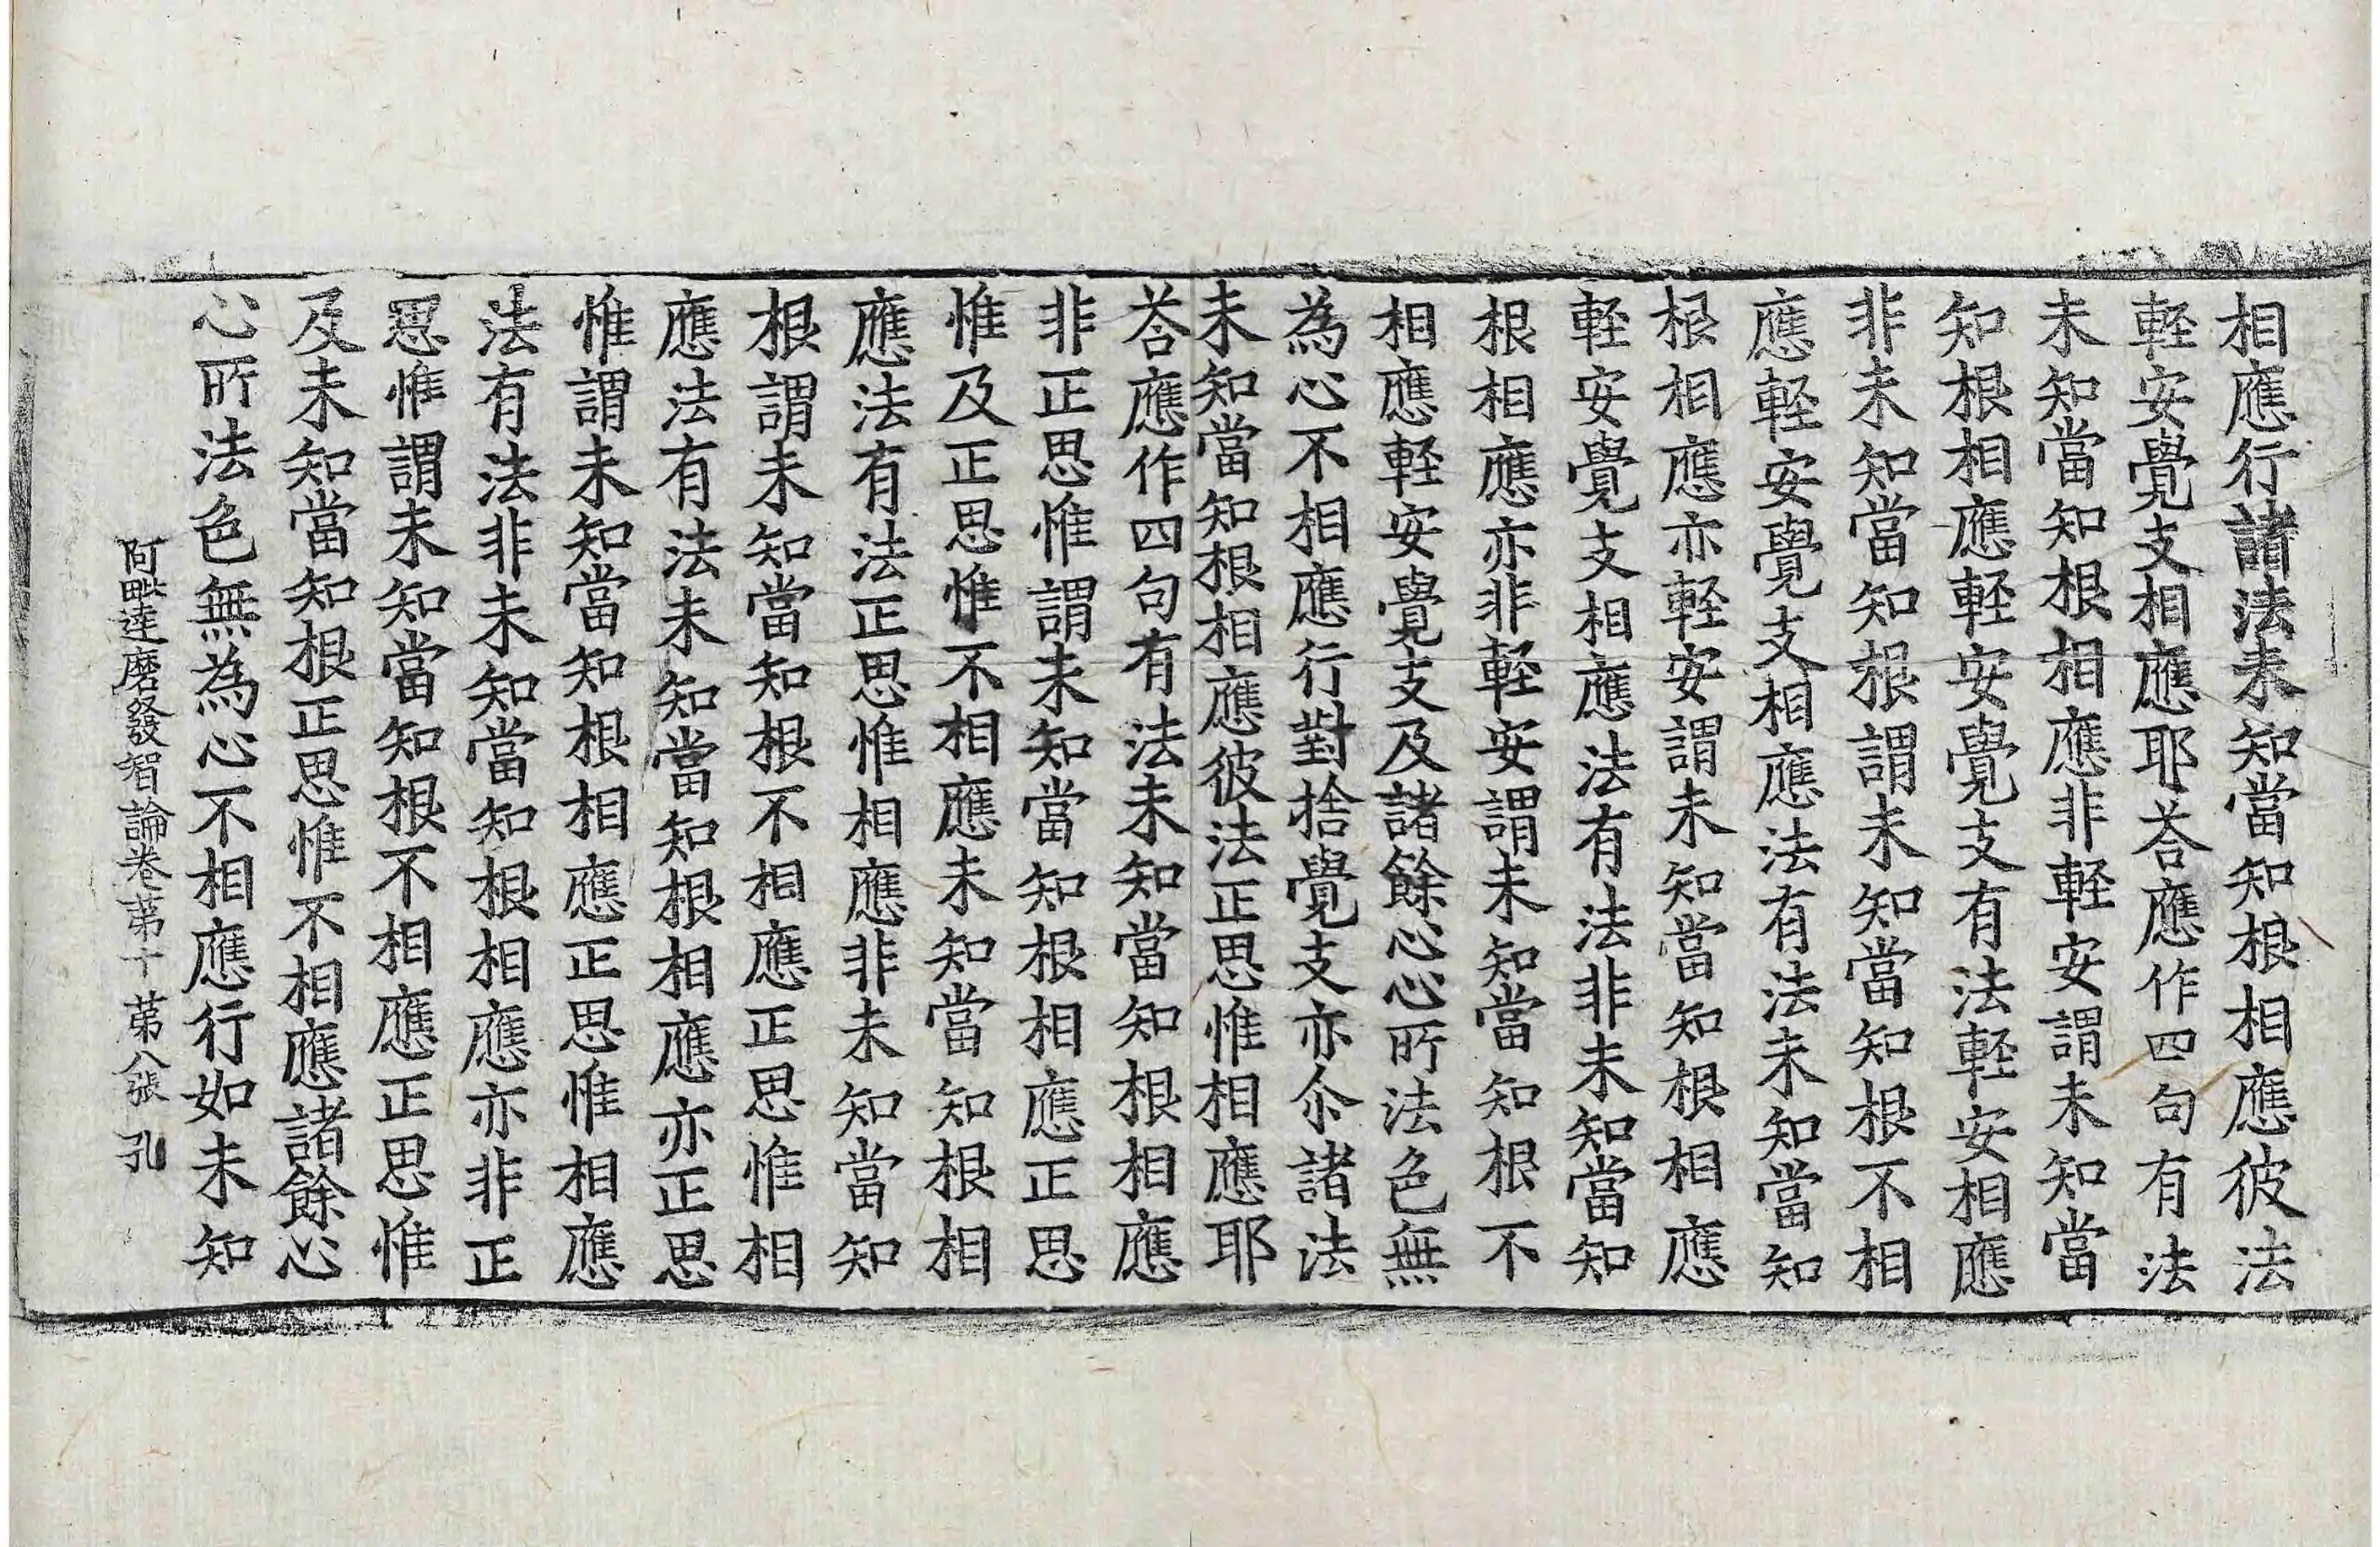 相應行諸法未知當知根相應彼法
輕安覺支相應耶荅應作四句有法
未知當知根相應非輕安謂未知當
知根相應輕安覺支有法輕安相應
非未知當知根謂未知當知根不相
應輕安覺支相應法有法未知當知
根相應亦輕安謂未知當知根相應
輕安覺支相應法有法非未知當知
根相應亦非輕安謂未知當知根不
相應輕安覺支及諸餘心心所法色無
為心不相應行對捨覺支亦尒諸法
未知當知根相應彼法正思惟相應耶
荅應作四句有法未知當知根相應
非正思惟謂未知當知根相應正思
惟及正思惟不相應未知當知根相
應法有法正思惟相應非未知當知
根謂未知當知根不相應正思惟相
應法有法未知當知根相應亦正思
惟謂未知當知根相應正思惟相應
法有法非未知當知根相應亦非正
思惟謂未知當知根不相應正思惟
及未知當知根正思惟不相應諸餘心
心所法色無為心不相應行如未知
阿毗達磨發智論卷第十 第八張 孔